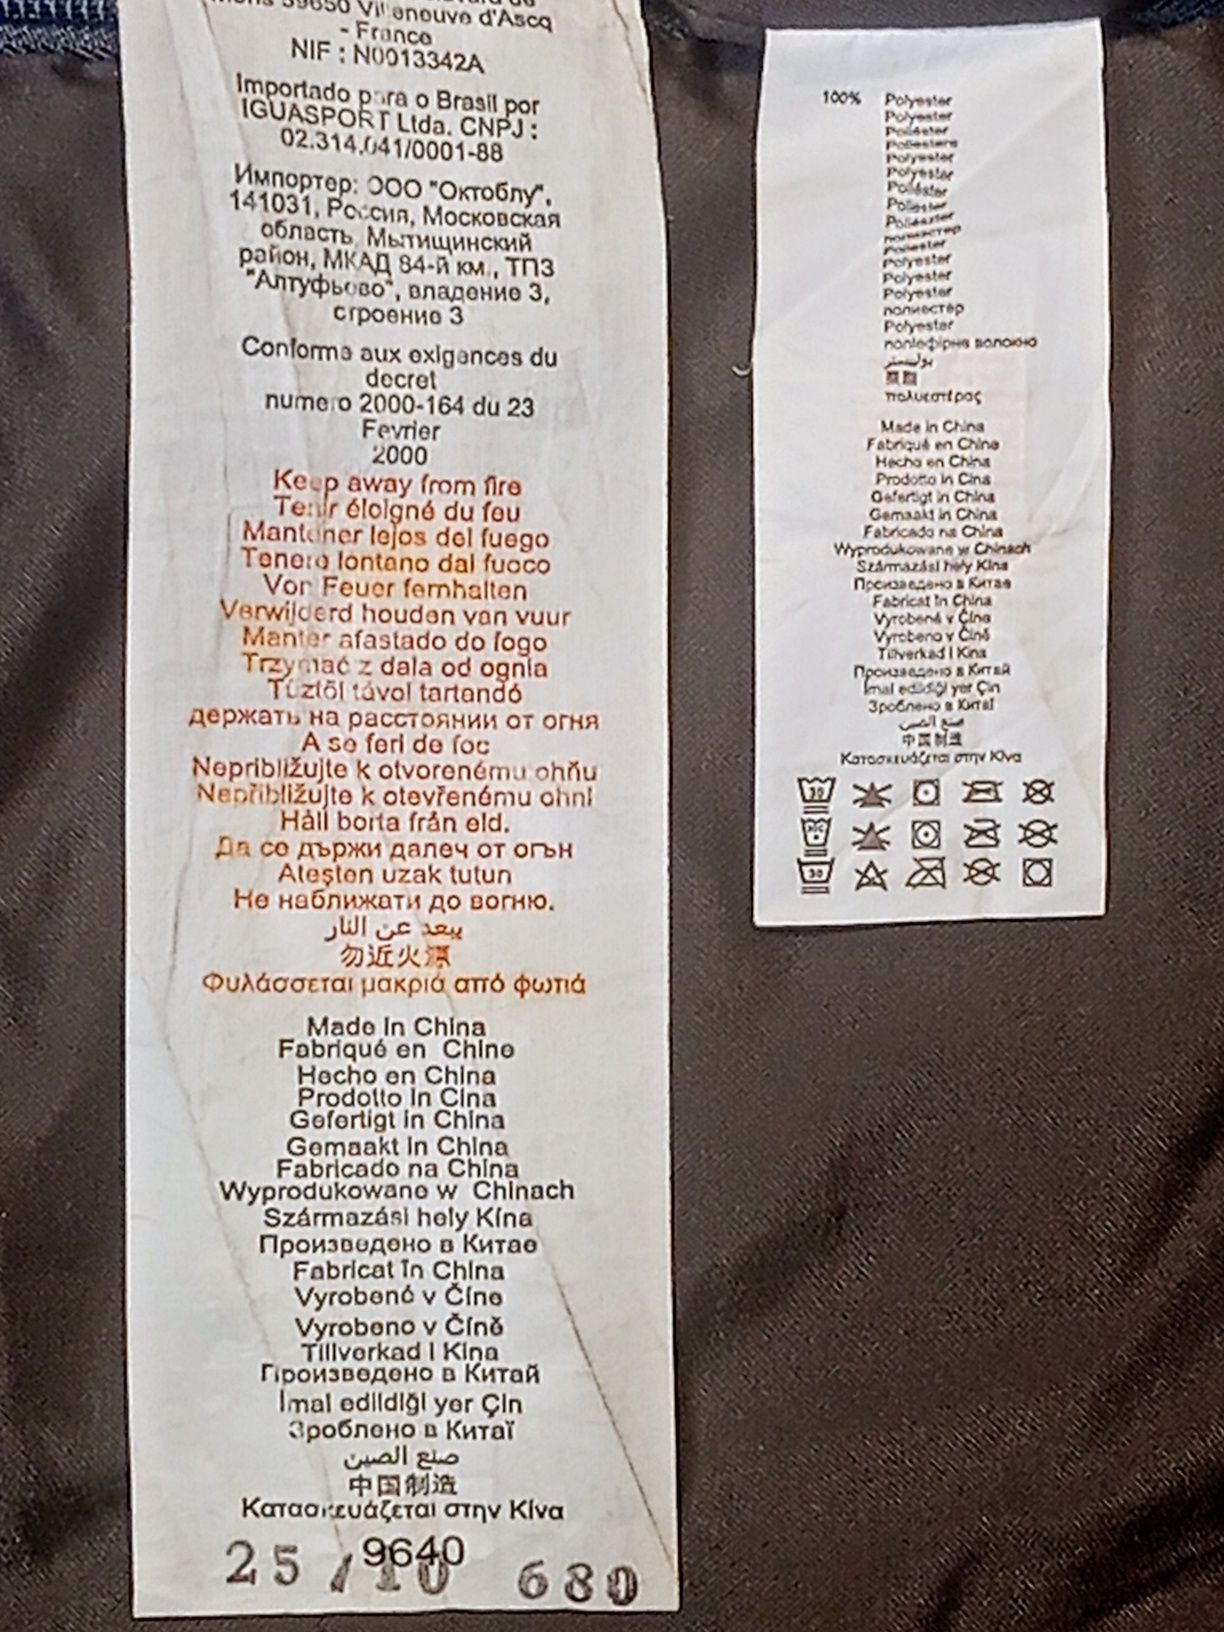 59650 Villeneuve d'Ascq
- France
NIF : N0013342A
Importado para o Brasil por
IGUASPORT Ltda. CNPJ :
02.314.041/0001-88
Импортер: ООО "Октоблу",
141031, Россия, Московская
область, Мытищинский
район, МКАД 84-й км., ТПЗ
"Алтуфьево", владение 3,
строение 3
Conforme aux exigences du
decret
numero 2000-164 du 23
Fevrier
2000
Keep away from fire
Tenir éloigné du feu
Mantener lejos del fuego
Tenere lontano dal fuoco
Von Feuer fernhalten
Verwijderd houden van vuur
Manter afastado do fogo
Trzymać z dala od ognia
Tűztől távol tartandó
держать на расстоянии от огня
A se feri de foc
Nepribližujte k otvorenému ohňu
Nepřibližujte k otevřenému ohni
Håll borta från eld.
Да се държи далеч от огън
Ateşten uzak tutun
Не наближати до вогню.
يبعد عن النار
勿近火源
Φυλάσσεται μακριά από φωτιά
Made in China
Fabriqué en Chine
Hecho en China
Prodotto in Cina
Gefertigt in China
Gemaakt in China
Fabricado na China
Wyprodukowane w Chinach
Származási hely Kína
Произведено в Китае
Fabricat în China
Vyrobené v Číne
Vyrobeno v Číně
Tillverkad i Kina
Произведено в Китай
İmal edildiği yer Çin
Зроблено в Китаї
صنع الصين
中国制造
Κατασκευάζεται στην Κίνα
9640
25/10 680
100% Polyester
Polyester
Poliéster
Poliestere
Polyester
Polyester
Poliéster
Poliester
Poliészter
полиэстер
Poliester
Polyester
Polyester
Polyester
полиестер
Polyester
поліефірне волокно
بوليستر
πολυεστέρας
Made in China
Fabriqué en Chine
Hecho en China
Prodotto in Cina
Gefertigt in China
Gemaakt in China
Fabricado na China
Wyprodukowane w Chinach
Származási hely Kína
Произведено в Китае
Fabricat în China
Vyrobené v Číne
Vyrobeno v Číně
Tillverkad i Kina
Произведено в Китай
İmal edildiği yer Çin
Зроблено в Китаї
صنع الصين
中国制造
Κατασκευάζεται στην Κίνα
30
30